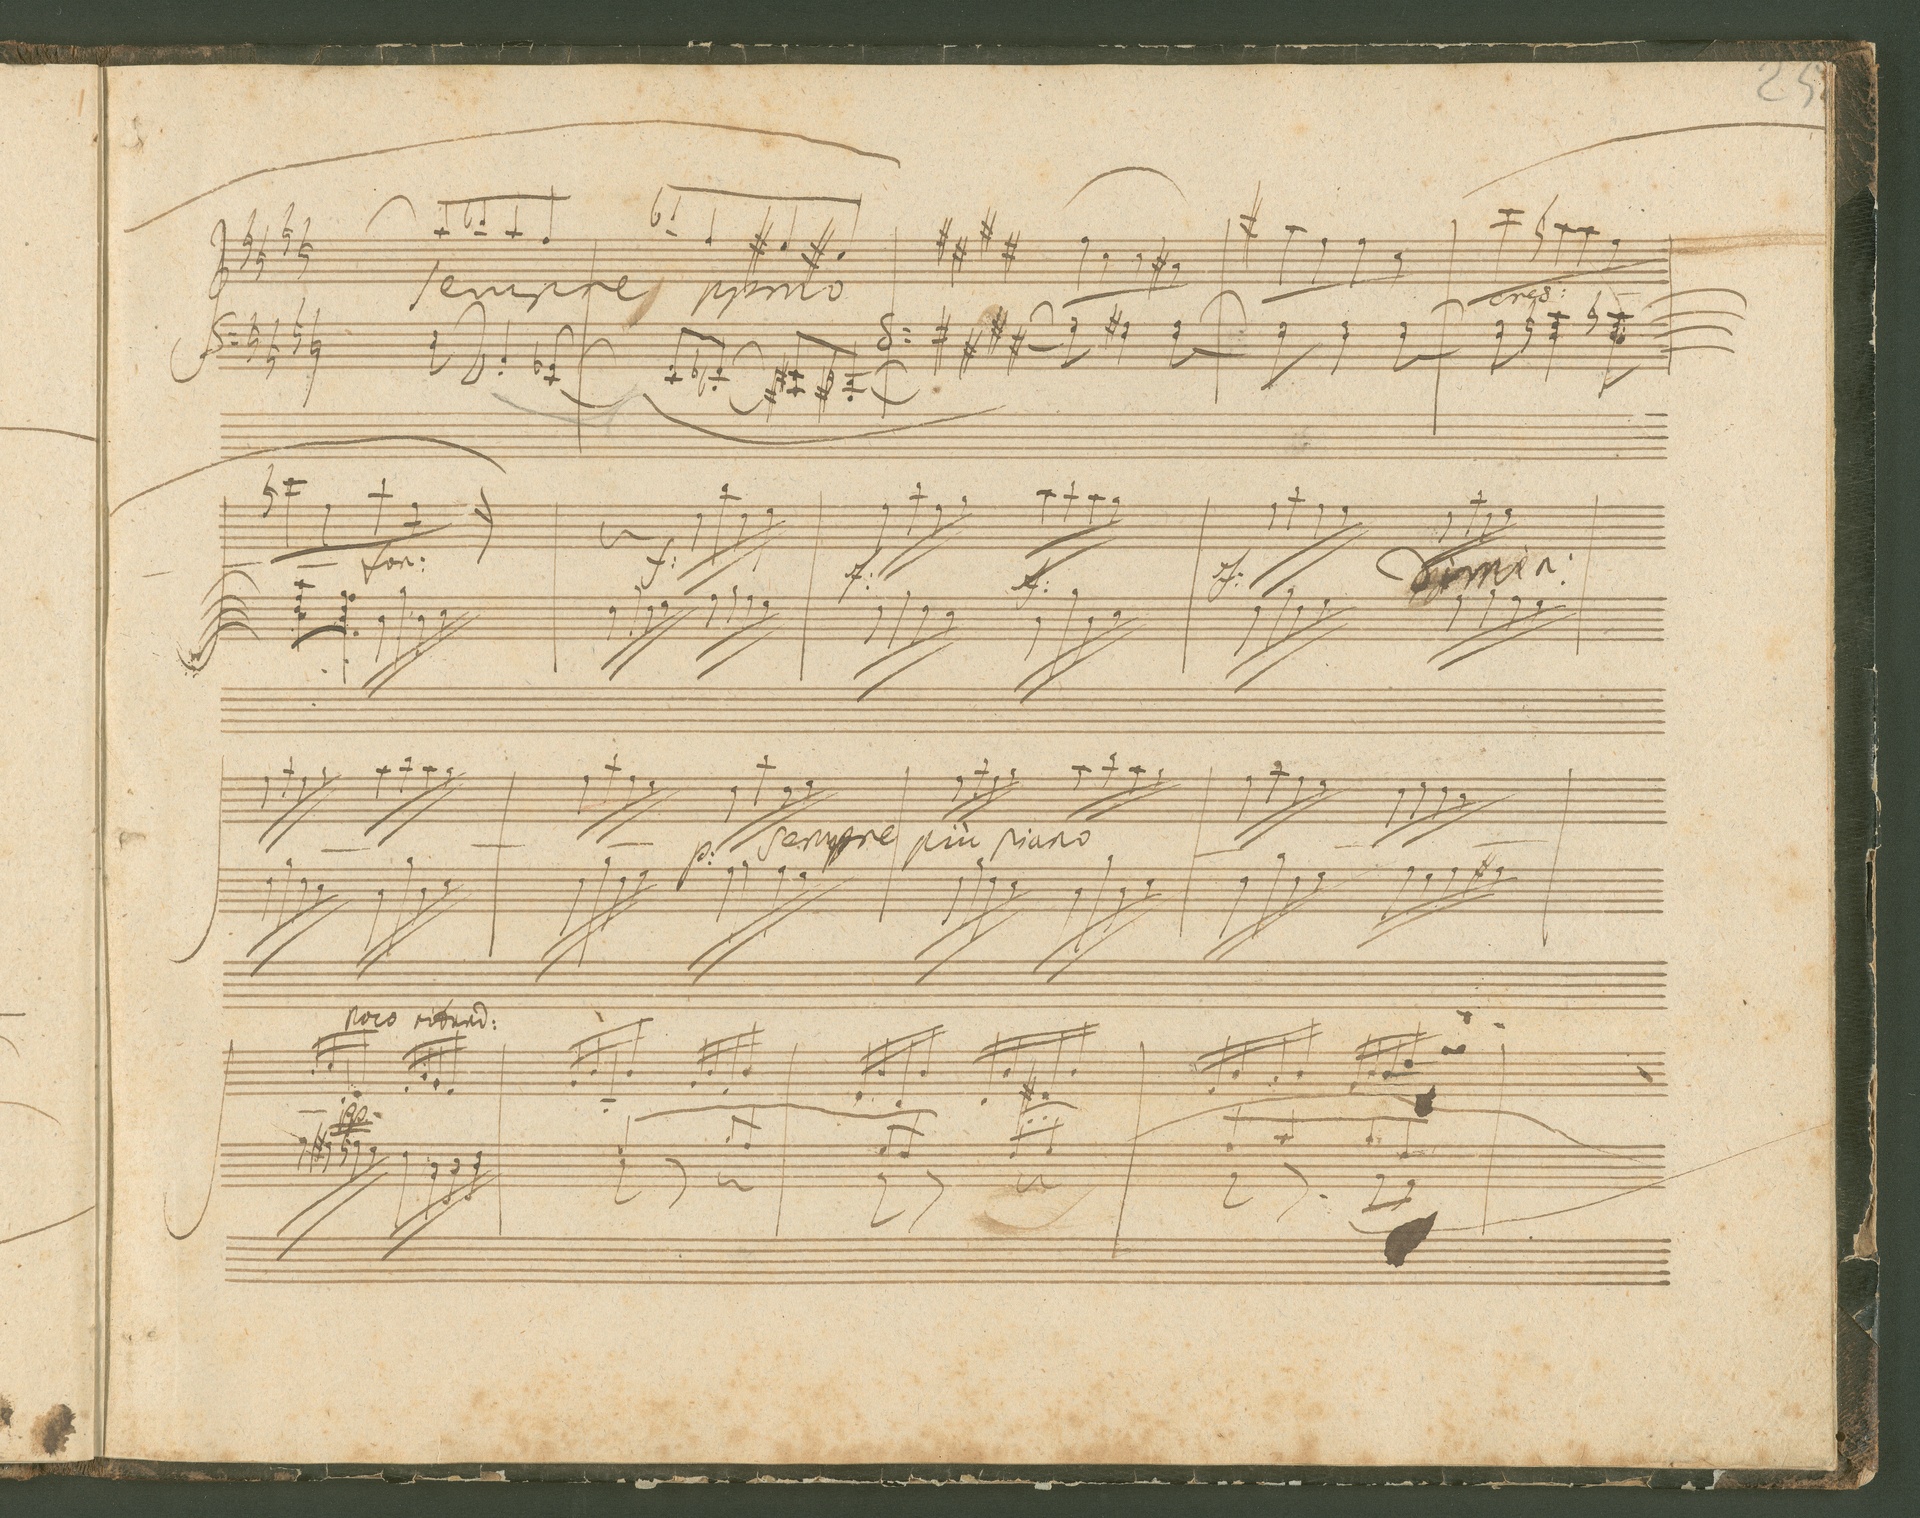 25
sempre ppmo
cres:
for:
f: f: f: f: dimin:
p: sempre più piano
poco ritard: